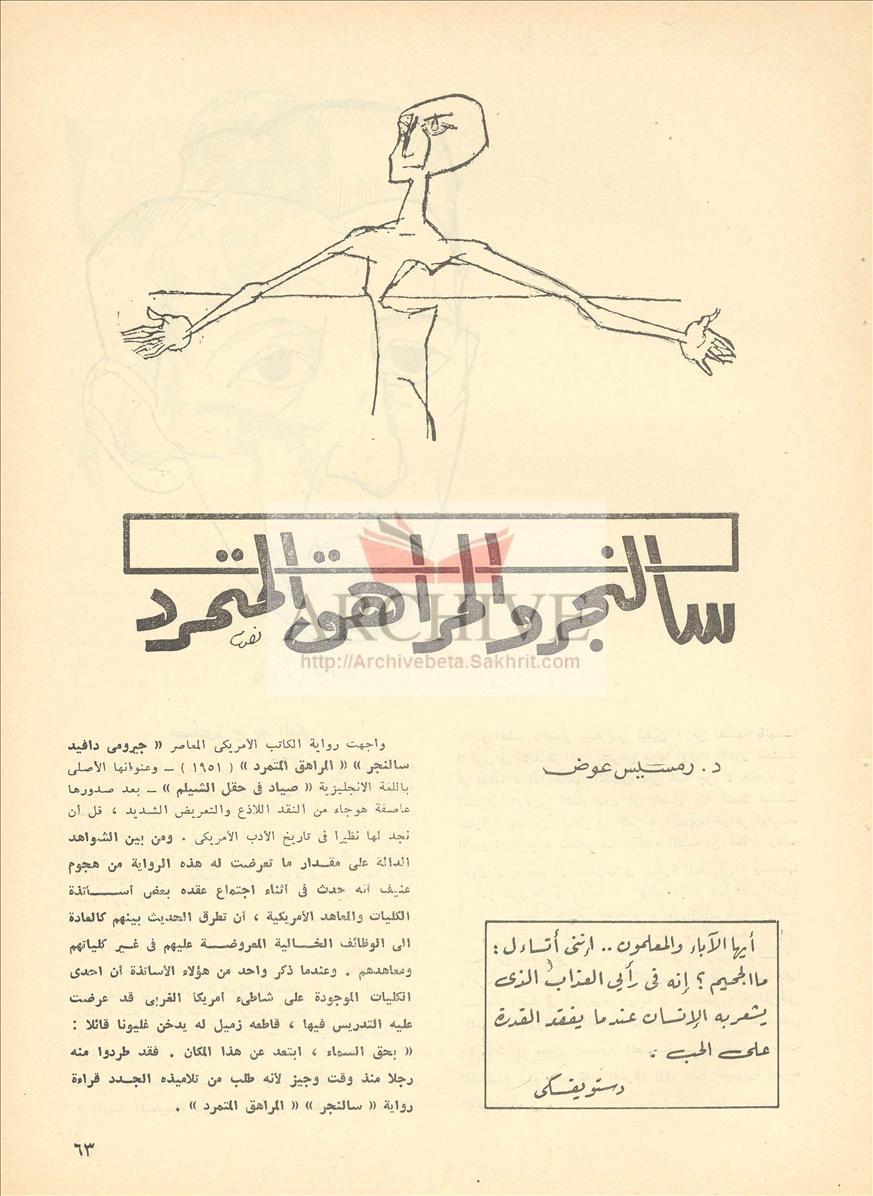 سالنجر والمراهق المتمرد
ARCHIVE
http://Archivebeta.Sakhrit.com
د. رمسيس عوض
أيها الآباء والمعلمون .. إننى أتساءل :
ما الجحيم ؟ إنه فى رأيى العذاب الذى
يشعر به الإنسان عندما يفقد القدرة
على الحب .
دستويفسكى
واجهت رواية الكاتب الأمريكى المعاصر « جيرومى دافيد
سالنجر » « المراهق المتمرد » ( ١٩٥١ ) ــ وعنوانها الأصلى
باللغة الانجليزية « صياد فى حقل الشيلم » ــ بعد صدورها
عاصفة هوجاء من النقد اللاذع والتعريض الشديد ، قل أن
نجد لها نظيرا فى تاريخ الأدب الأمريكى . ومن بين الشواهد
الدالة على مقدار ما تعرضت له هذه الرواية من هجوم
عنيف أنه حدث فى أثناء اجتماع عقده بعض أســـاتذة
الكليات والمعاهد الأمريكية ، أن تطرق الحديث بينهم كالعادة
الى الوظائف الخــالية المعروضــة عليهم فى غــير كلياتهم
ومعاهدهم . وعندما ذكر واحد من هؤلاء الأساتذة أن احدى
الكليات الموجودة على شاطىء أمريكا الغربى قد عرضت
عليه التدريس فيها ، قاطعه زميل له يدخن غليونا قائلا :
« بحق السماء ، ابتعد عن هذا المكان . فقد طردوا منه
رجلا منذ وقت وجيز لأنه طلب من تلاميذه الجـدد قراءة
رواية « سالنجر » « المراهق المتمرد » .
٦٣